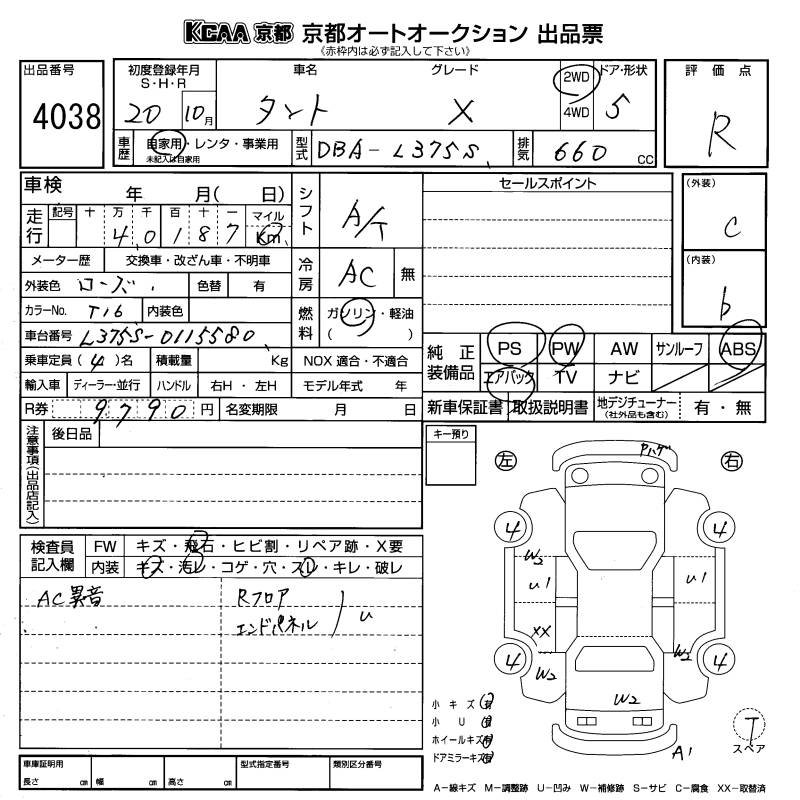 KCAA 京都 京都オートオークション 出品票
《赤枠内は必ず記入して下さい》
出品番号
4038
初度登録年月
S・H・R
20 10月
車名
タント
グレード
X
2WD
4WD
ドア・形状
5
評価点
R
車歴
自家用・レンタ・事業用
未記入は自家用
型式
DBA-L375S
排気
660 CC
車検 年 月( 日)
走行
記号 十 万 千 百 十 一 マイル
4 0 1 8 7 Km
シフト
A/T
メーター歴 交換車・改ざん車・不明車
外装色 ローズ
色替 有
冷房
AC 無
カラーNo. T16 内装色
燃料
ガソリン・軽油
( )
車台番号 L375S-0115580
乗車定員(4)名 積載量 Kg NOX 適合・不適合
輸入車 ディーラー・並行 ハンドル 右H・左H モデル年式 年
R券 9790円 名変期限 月 日
セールスポイント
(外装)
C
(内装)
b
純正装備品
PS PW AW サンルーフ ABS
エアバック TV ナビ
新車保証書 取扱説明書 地デジチューナー 有・無
(社外品も含む)
注意事項(出品店記入)
後日品
キー預り
左 右
Pハゲ
4 4
W2
U1 U1
XX
4 4
W2 W2
W2
A1
T
スペア
検査員記入欄
FW キズ・飛石・ヒビ割・リペア跡・X要
内装 キズ・汚レ・コゲ・穴・スレ・キレ・破レ
AC異音
Rフロア
エンドパネル
U
小キズ
小 U
ホイールキズ
ドアミラーキズ
車庫証明用
長さ cm 幅 cm 高さ cm
型式指定番号
類別区分番号
A-線キズ M-調整跡 U-凹み W-補修跡 S-サビ C-腐食 XX-取替済